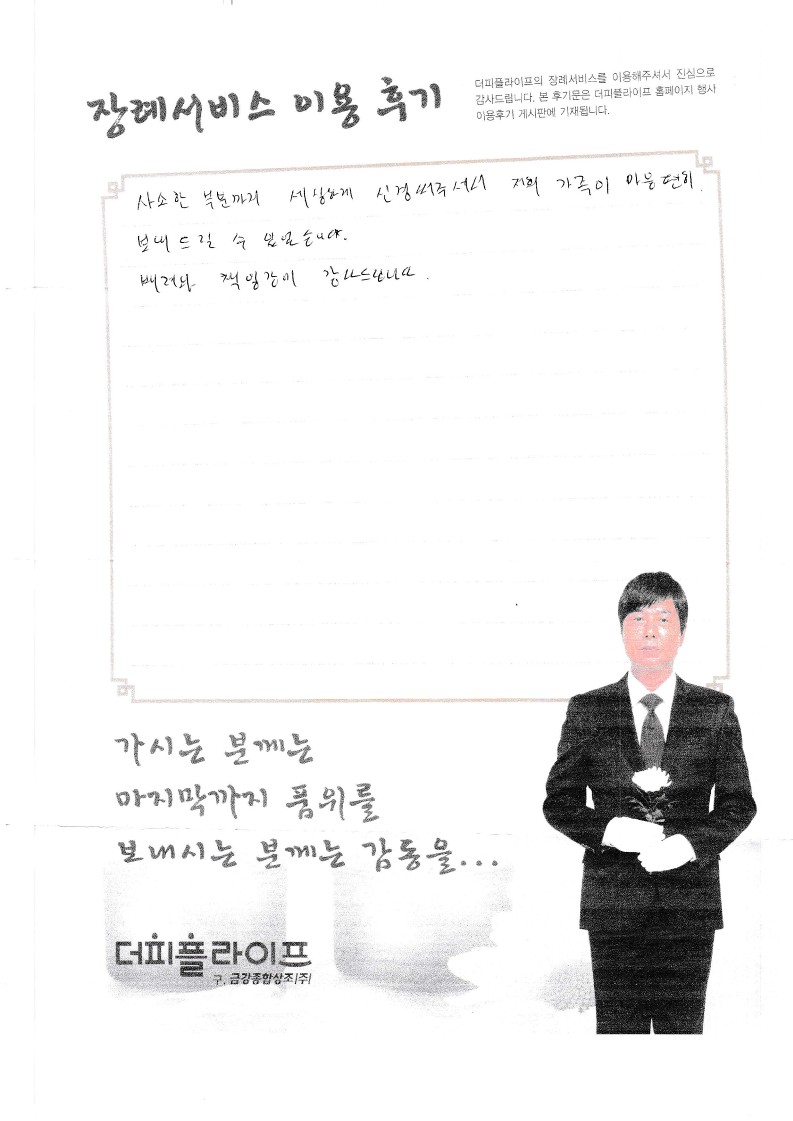 장례서비스 이용 후기
더피플라이프의 장례서비스를 이용해주셔서 진심으로
감사드립니다. 본 후기문은 더피플라이프 홈페이지 행사
이용후기 게시판에 기재됩니다.
사소한 부분까지 세심하게 신경써주셔서 저희 가족이 마음 편히
보내드릴 수 있었습니다.
배려와 책임감에 감사드립니다.
가시는 분께는
마지막까지 품위를
보내시는 분께는 감동을...
더피플라이프
구, 금강종합상조(주)